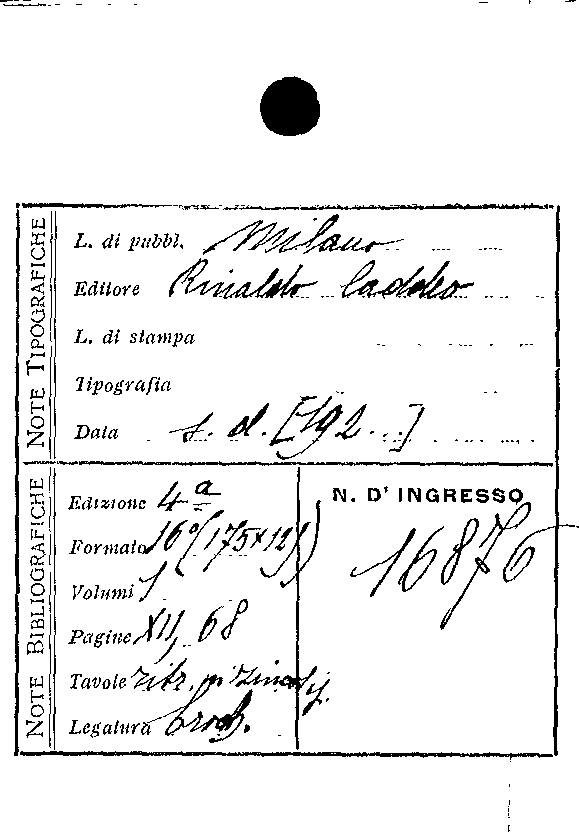 NOTE TIPOGRAFICHE
L. di pubbl. Milano
Editore Rinaldo Caddeo
L. di stampa
Tipografia
Data s. d. [192...]
NOTE BIBLIOGRAFICHE
Edizione 4ª
Formato 16º (175×12
Volumi 1
Pagine XII, 68
Tavole ritr.
Legatura broch.
N. D' INGRESSO
16876